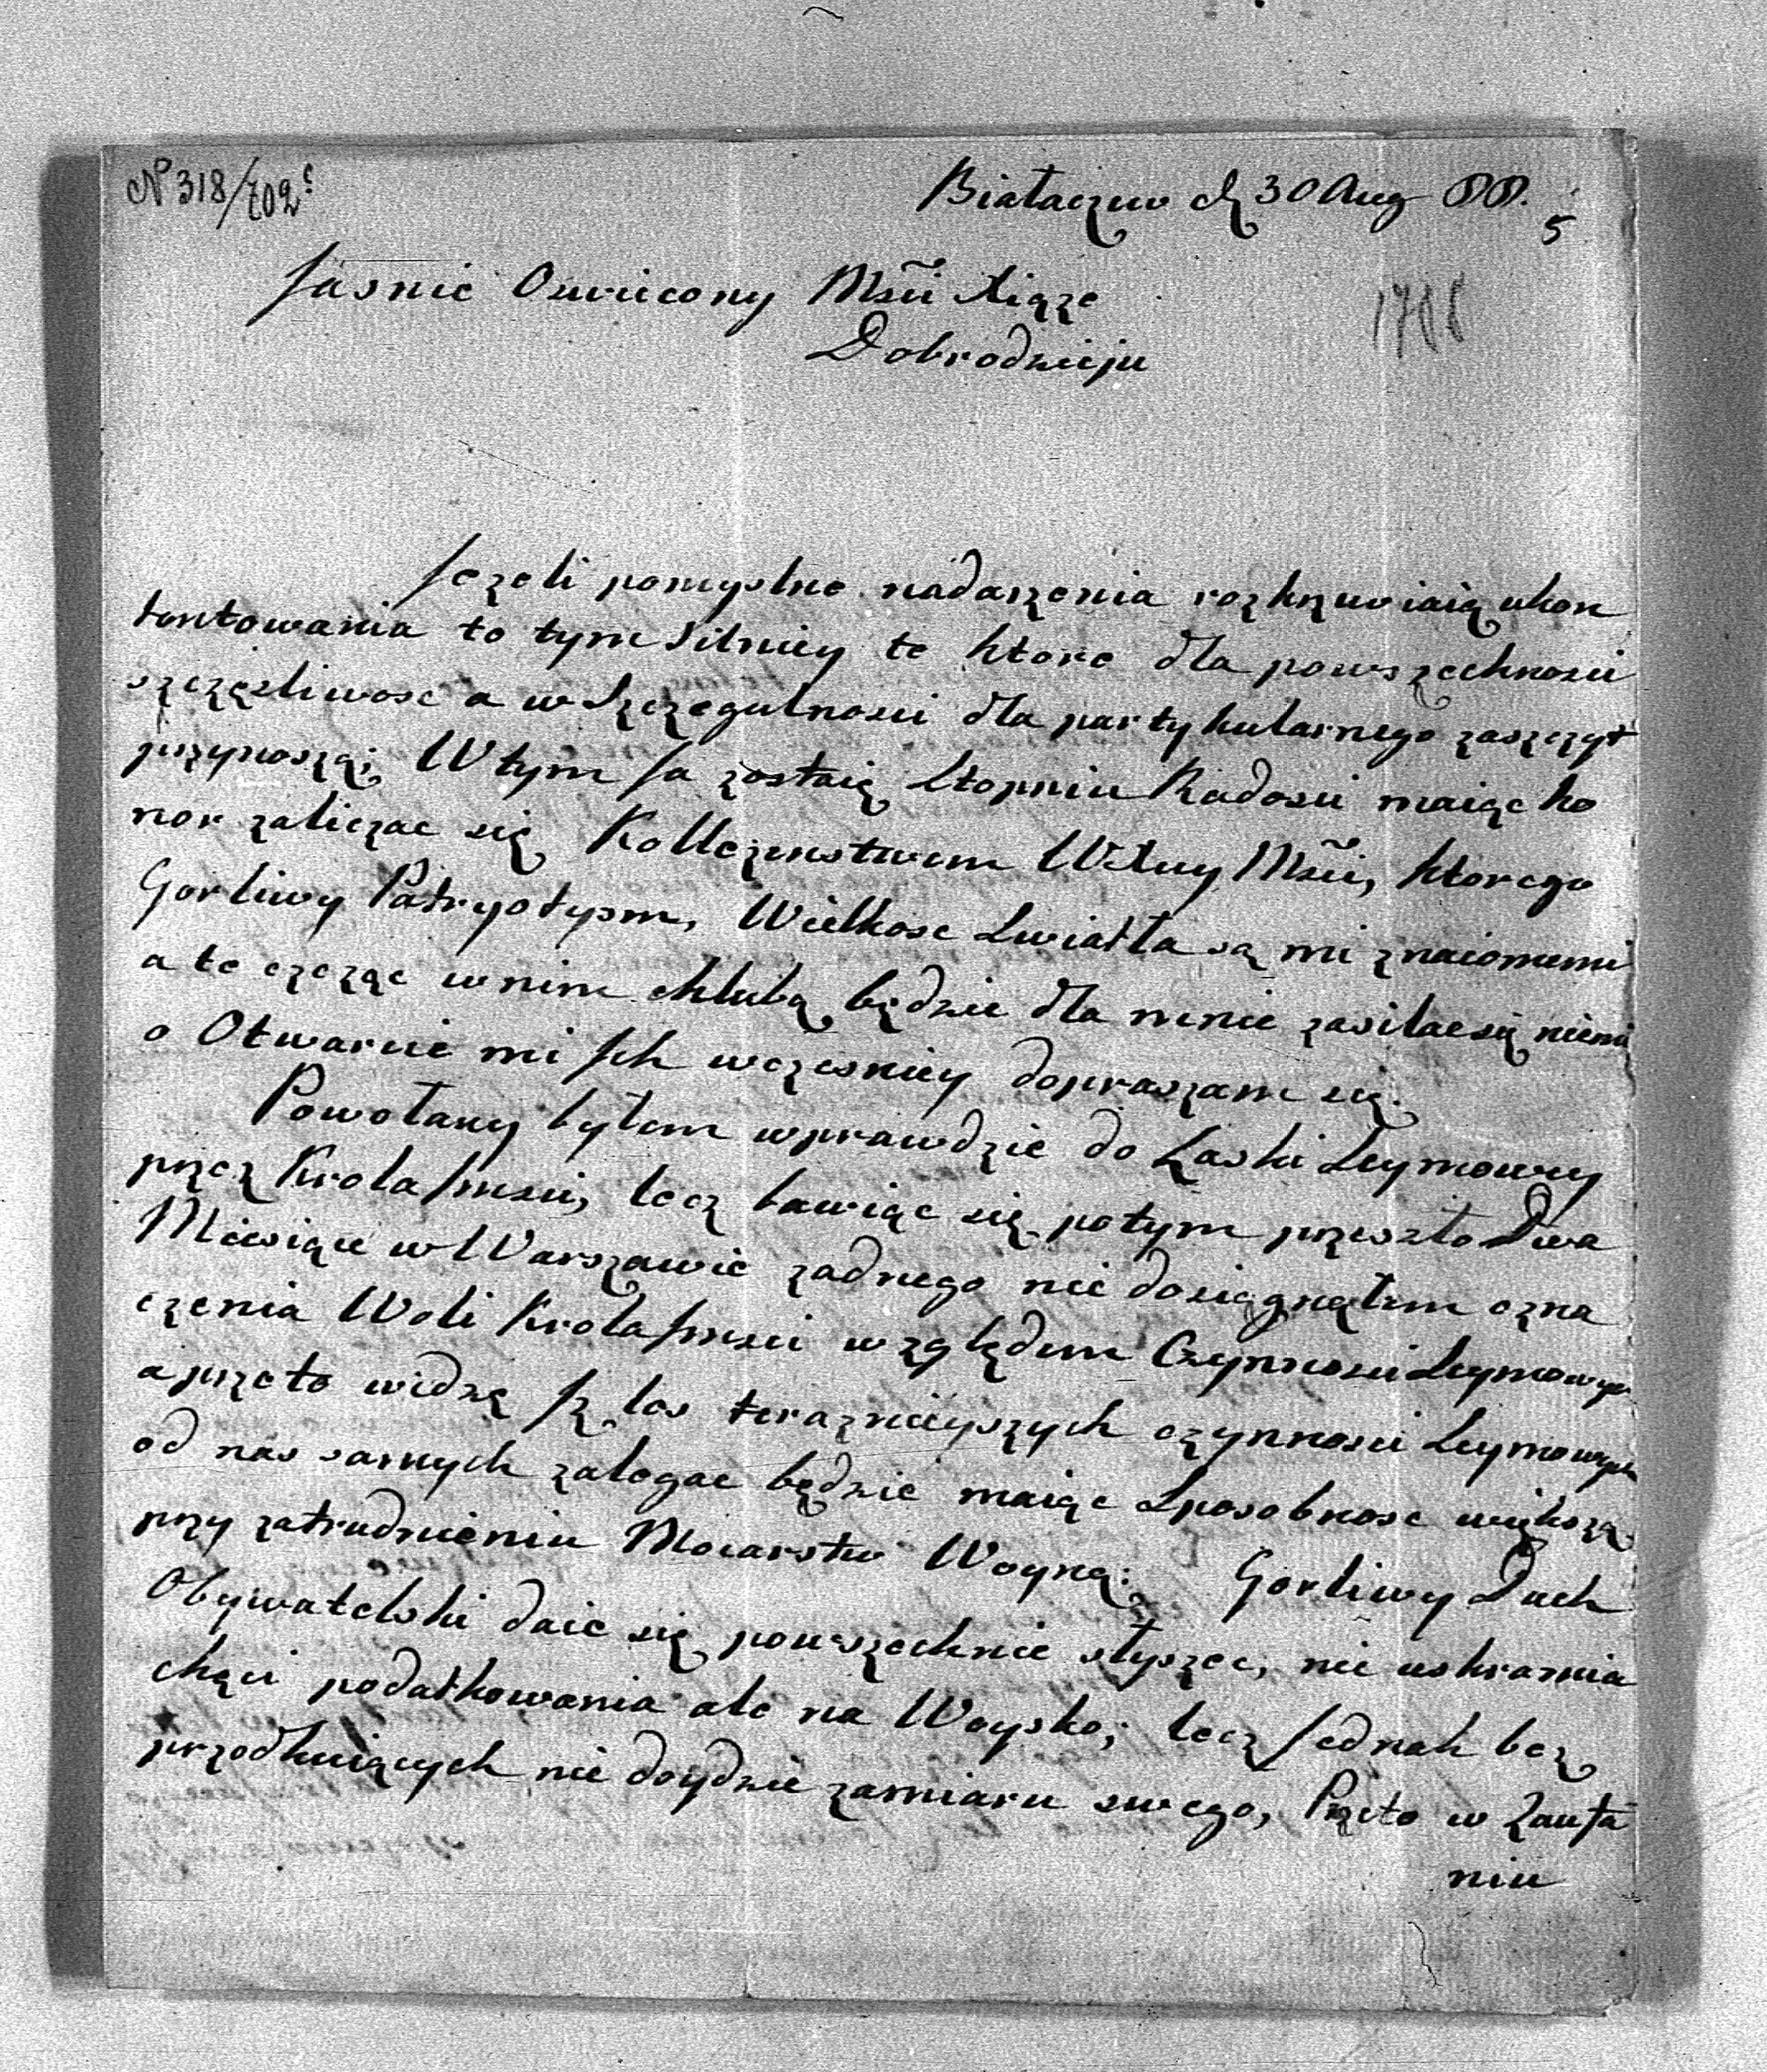 N 318/702
Białaczuw d 30 Aug 88.
5
Jasnie Oswiecony Msći Xiąże
1788
Dobrodzieju
Jezeli pomyslne nadarzenia rozkrzewiaią ukon
tentowania to tym silniey te ktore dla powszechnosci
szczęsliwosc a w Szczegulnosci dla partykularnego zaszczyt
przynoszą; W tym Ja zostaię Stopniu Radosci maiąc ho
nor zaliczac się Kollezenstwem WXcey Msći, ktorego
Gorliwy Patryotyzm, Wielkosc Swiatła są mi znaiomemi
a te czcząc w nim chlubą będzie dla mnie zasilac się niemi
o Otwarcie mi Jch wczesniey dopraszam się.
Powołany byłem wprawdzie do Laski Seymowey
przez Krola Jmsci, lecz bawiąc się potym przeszło Dwa
Miesiące w Warszawie zadnego nie dosiągnąłem ozna
czenia Woli Krola Jmsci względem Czynnosci Seymowych
a przeto widzę Jz los teraznieyszych czynnosci Seymowych
od nas samych zalegac będzie maiąc Sposobnosc większą
przy zatrudnieniu Mocarstw Woyną; Gorliwy Duch
Obywatelski daie się powszechnie słyszec, nie uskramia
chęci podatkowania ale na Woysko; lecz Jednak bez
przodkuiących nie doydzie zamiaru swego, Przeto w Zaufa
niu